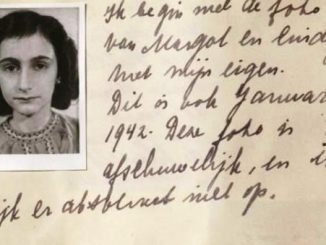 Ik begin met de foto
van Margot en eindig
met mijn eigen.
Dit is ook Januar
1942. Deze foto is
afschuwelijk, en i
ijk er absoluut niet op.